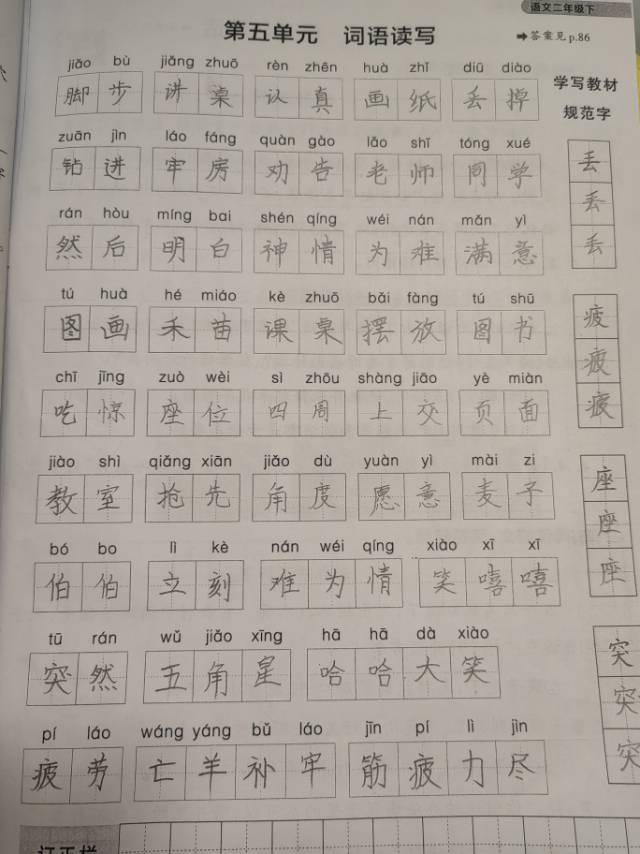 语文二年级下
第五单元 词语读写
➡答案见p.86
jiǎo bù jiǎng zhuō rèn zhēn huà zhǐ diū diào
脚步 讲桌 认真 画纸 丢掉
学写教材
规范字
zuān jìn láo fáng quàn gào lǎo shī tóng xué
钻进 牢房 劝告 老师 同学
丢
丢
丢
rán hòu míng bai shén qíng wéi nán mǎn yì
然后 明白 神情 为难 满意
tú huà hé miáo kè zhuō bǎi fàng tú shū
图画 禾苗 课桌 摆放 图书
疲
疲
疲
chī jīng zuò wèi sì zhōu shàng jiāo yè miàn
吃惊 座位 四周 上交 页面
jiào shì qiǎng xiān jiǎo dù yuàn yì mài zi
教室 抢先 角度 愿意 麦子
座
座
座
bó bo lì kè nán wéi qíng xiào xī xī
伯伯 立刻 难为情 笑嘻嘻
tū rán wǔ jiǎo xīng hā hā dà xiào
突然 五角星 哈哈大笑
突
突
突
pí láo wáng yáng bǔ láo jīn pí lì jìn
疲劳 亡羊补牢 筋疲力尽
订正栏